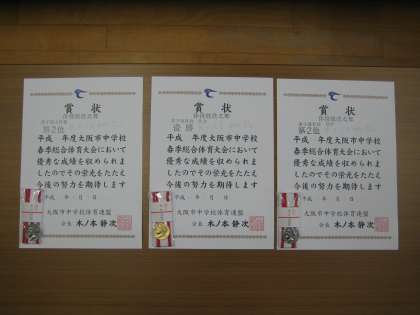 賞状
体操競技之部
第2位
平成　年度大阪市中学校
春季総合体育大会において
優秀な成績を収められま
したのでその栄光をたたえ
今後の努力を期待します
平成　年　月　日
大阪市中学校体育連盟
会長　木ノ本静次
賞状
体操競技之部
優勝
平成　年度大阪市中学校
春季総合体育大会において
優秀な成績を収められま
したのでその栄光をたたえ
今後の努力を期待します
平成　年　月　日
大阪市中学校体育連盟
会長　木ノ本静次
賞状
体操競技之部
第2位
平成　年度大阪市中学校
春季総合体育大会において
優秀な成績を収められま
したのでその栄光をたたえ
今後の努力を期待します
平成　年　月　日
大阪市中学校体育連盟
会長　木ノ本静次